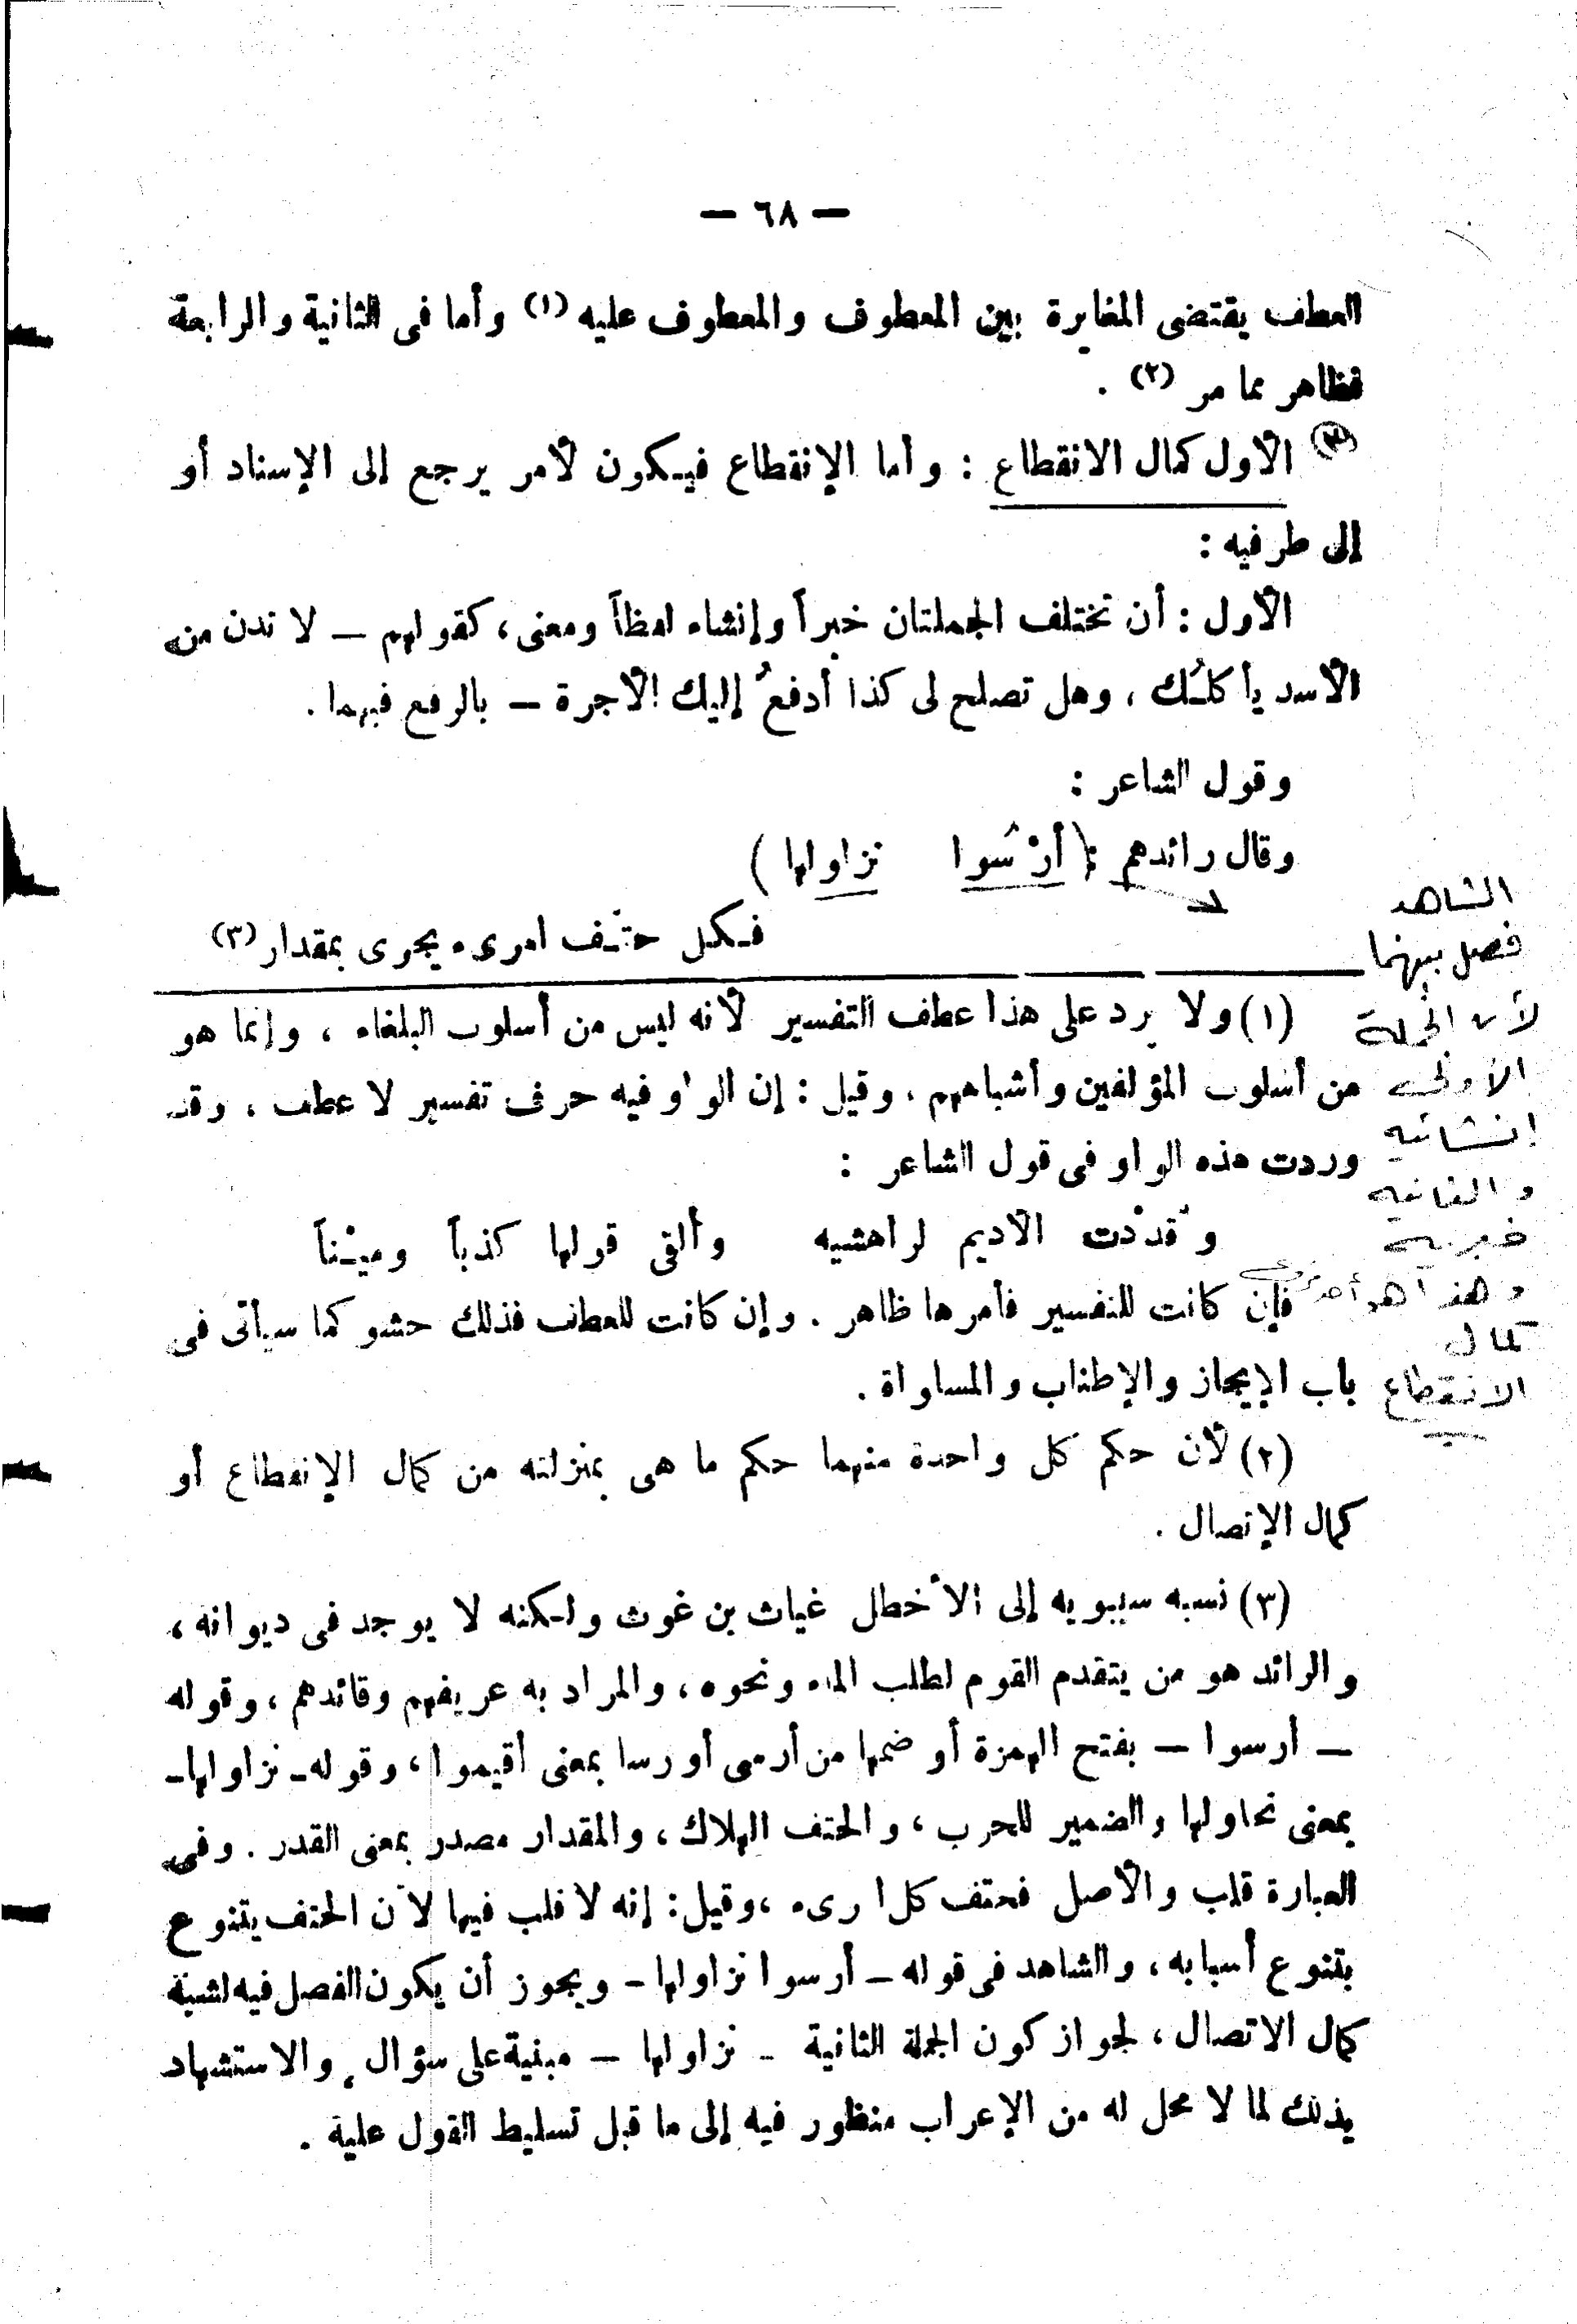 — ٦٨ —
العطف يقتضى المغايرة بين المعطوف والمعطوف عليه (١) وأما فى الثانية والرابعة
فظاهر مما مر (٢) .
الأول كمال الانقطاع : وأما الإنقطاع فيكون لأمر يرجع إلى الإسناد أو
إلى طرفيه :
الأول : أن تختلف الجملتان خبراً وإنشاء لفظاً ومعنى، كقولهم — لا تدن من
الأسد يأكلُك ، وهل تصلح لى كذا أدفعُ إليك الأجرة — بالرفع فيهما .
وقول الشاعر :
وقال رائدهم : (أرْسُوا نزاولها )
فكل حتْف امرىء يجرى بمقدار (٣)
الشاهد
فصل بينهما
لأن الجملة
الأولى
إنشائية
والثانية
خبرية
وهذا هو أحد
كمال
الانقطاع
(١) ولا يرد على هذا عطف التفسير لأنه ليس من أسلوب البلغاء ، وإنما هو
من أسلوب المؤلفين وأشباههم ، وقيل : إن الواو فيه حرف تفسير لا عطف ، وقد
وردت هذه الواو فى قول الشاعر :
وقدّدت الأديم لراهشيه وألقى قولها كذباً وميْناً
فإن كانت للتفسير فأمرها ظاهر . وإن كانت للعطف فذلك حشو كما سيأتى فى
باب الإيجاز والإطناب والمساواة .
(٢) لأن حكم كل واحدة منهما حكم ما هى بمنزلته من كمال الإنقطاع أو
كمال الإتصال .
(٣) نسبه سيبويه إلى الأخطل غياث بن غوث ولكنه لا يوجد فى ديوانه ،
والرائد هو من يتقدم القوم لطلب الماء ونحوه ، والمراد به عريفهم وقائدهم ، وقوله
— أرسوا — بفتح الهمزة أو ضمها من أرسى أو رسا بمعنى أقيموا ، وقوله ـ نزاولها ـ
بمعنى نحاولها والضمير للحرب ، والحتف الهلاك ، والمقدار مصدر بمعنى القدر . وفى
العبارة قلب والأصل فحتف كل ا رىء ، وقيل : إنه لا قلب فيها لأن الحتف يتنوع
بتنوع أسبابه ، والشاهد فى قوله ـ أرسوا نزاولها ـ ويجوز أن يكون الفصل فيه لشبة
كمال الاتصال ، لجواز كون الجملة الثانية ـ نزاولها — مبنية على سؤال ، والاستشهاد
بذلك لما لا محل له من الإعراب منظور فيه إلى ما قبل تسليط القول علية .